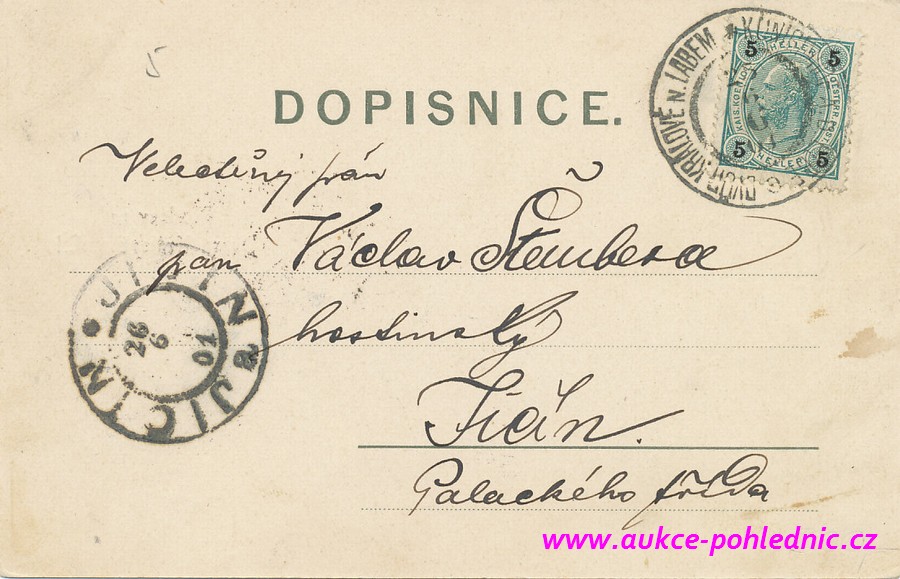 5
DOPISNICE.
DVŮR KRÁLOVÉ N. LABEM
5 HELLER 5
KAIS. KOEN. OESTERR. POST
5 HELLER 5
Velectěný pán
pan Václav Štembera
hostinský
Jičín.
Palackého třída
JIČIN JIČÍN
26
6
01
www.aukce-pohlednic.cz